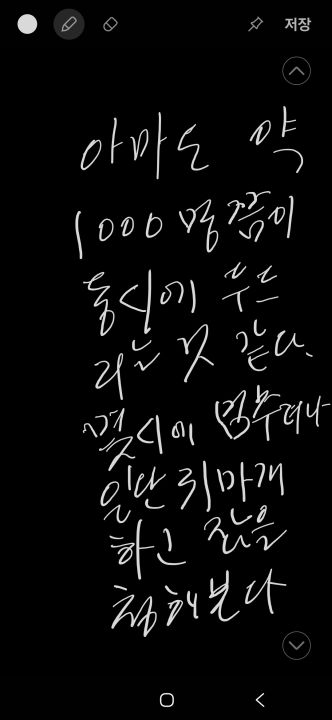 저장
아마도 약
1000명쯤이
동시에 두드
리는 것 같다.
몇시에 멈추려나
일단 귀마개
하고 잠을
청해본다